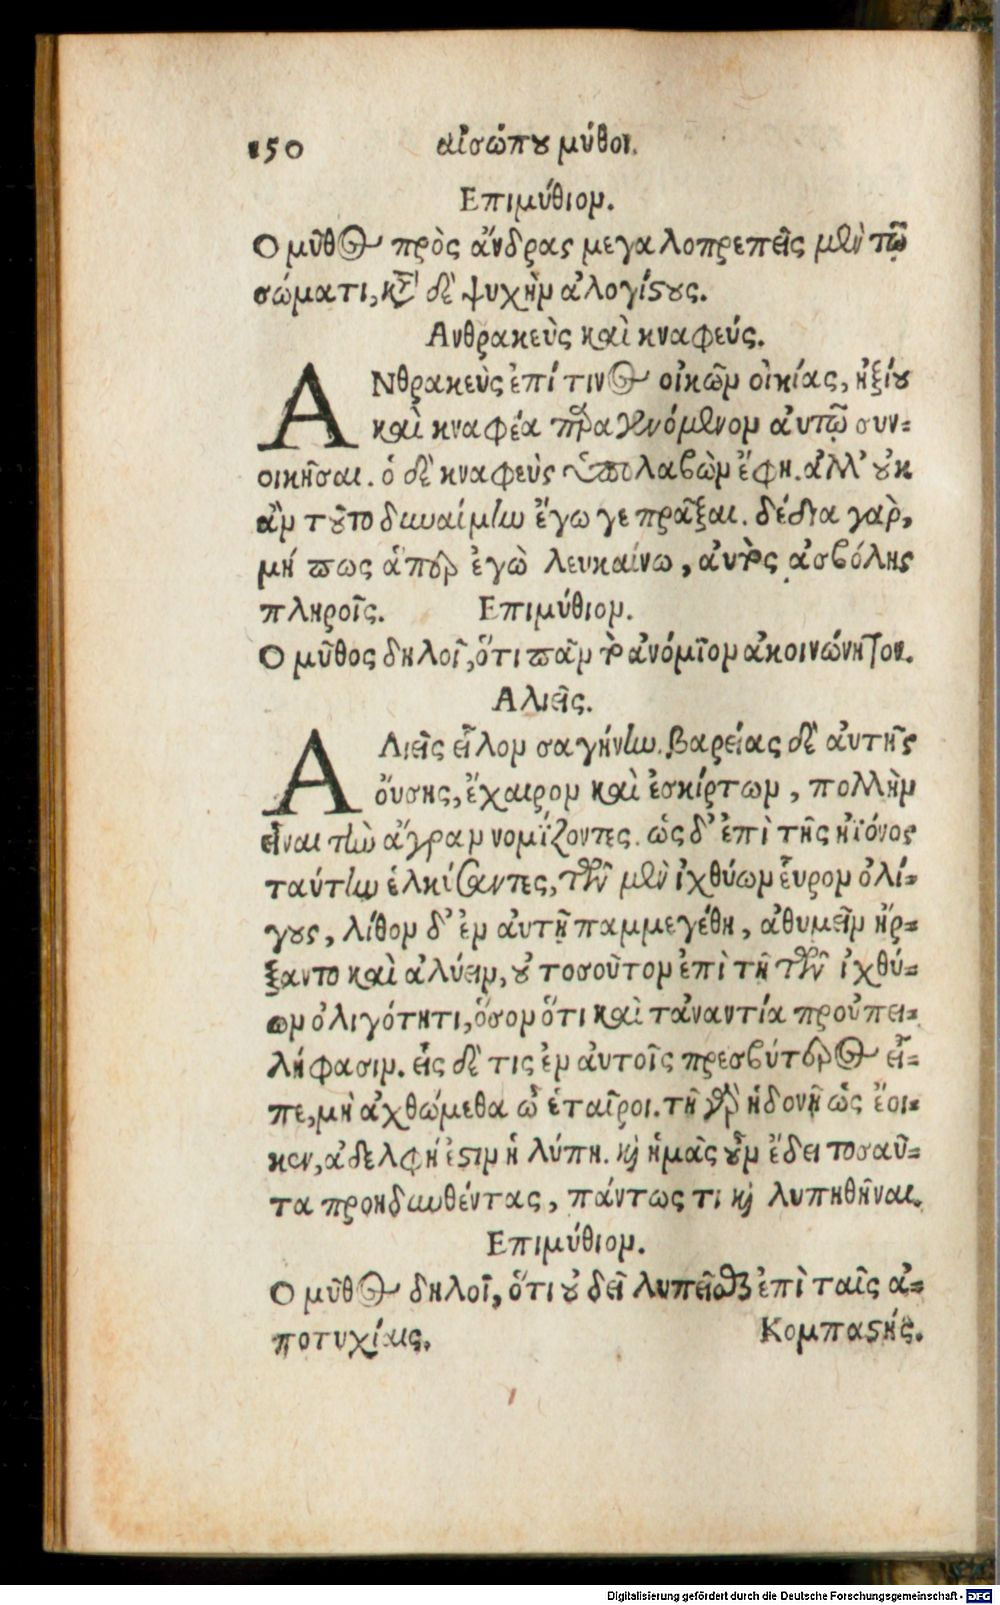 150 αἰσώπου μύθοι.
Επιμύθιον.
Ο μῦθος πρὸς ἄνδρας μεγαλοπρεπεῖς μὲν τῷ
σώματι, κατὰ δὲ ψυχὴν ἀλογίστους.
Ανθρακεὺς καὶ κναφεύς.
ΑΝθρακεὺς ἐπί τινος οἰκῶν οἰκίας, ἠξίου
καὶ κναφέα παραγενόμενον αὐτῷ συν-
οικῆσαι. ὁ δὲ κναφεὺς ὑπολαβὼν ἔφη. ἀλλ' οὐκ
ἂν τοῦτο δυναίμην ἔγωγε πρᾶξαι. δέδια γὰρ,
μή πως ἅπερ ἐγὼ λευκαίνω, αὐτὸς ἀσβόλης
πληροῖς. Επιμύθιον.
Ο μῦθος δηλοῖ, ὅτι πᾶν τὸ ἀνόμοιον ἀκοινώνητον.
Αλιεῖς.
ΑΛιεῖς εἷλον σαγήνην. βαρείας δὲ αὐτῆς
οὔσης, ἔχαιρον καὶ ἐσκίρτων, πολλὴν
εἶναι τὴν ἄγραν νομίζοντες. ὡς δ' ἐπὶ τῆς ἠϊόνος
ταύτην ἑλκύσαντες, τῶν μὲν ἰχθύων εὗρον ὀλί-
γους, λίθον δ' ἐν αὐτῇ παμμεγέθη, ἀθυμεῖν ἤρ-
ξαντο καὶ ἀλύειν, οὐ τοσοῦτον ἐπὶ τῇ τῶν ἰχθύ-
ων ὀλιγότητι, ὅσον ὅτι καὶ τἀναντία προϋπει-
λήφασιν. εἷς δέ τις ἐν αὐτοῖς πρεσβύτερος εἶ-
πε, μὴ ἀχθώμεθα ὦ ἑταῖροι. τῇ γὰρ ἡδονῇ ὡς ἔοι-
κεν, ἀδελφή ἐστιν ἡ λύπη. καὶ ἡμᾶς οὖν ἔδει τοσαῦ-
τα προηδυνθέντας, πάντως τι καὶ λυπηθῆναι.
Επιμύθιον.
Ο μῦθος δηλοῖ, ὅτι οὐ δεῖ λυπεῖσθαι ἐπὶ ταῖς ἀ-
ποτυχίαις. Κομπαστής.
Digitalisierung gefördert durch die Deutsche Forschungsgemeinschaft - DFG